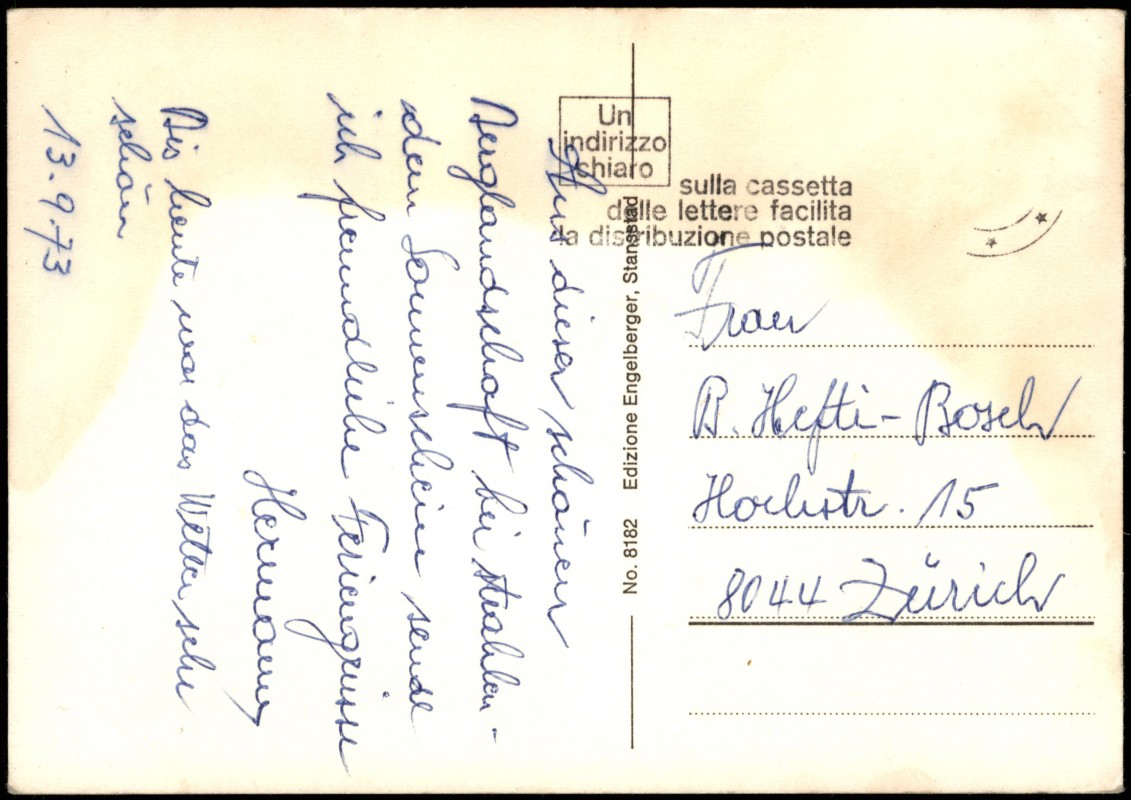 Aus dieser schönen
Berglandschaft bei strahlen-
dem Sonnenschein sende
ich freundliche Feriengrüsse
Hermann
Bis heute war das Wetter sehr
schön
13.9.73
No. 8182 Edizione Engelberger, Stansstad
Un
indirizzo
chiaro
sulla cassetta
delle lettere facilita
la distribuzione postale
Frau
B. Hefti-Bosch
Hochstr. 15
8044 Zürich